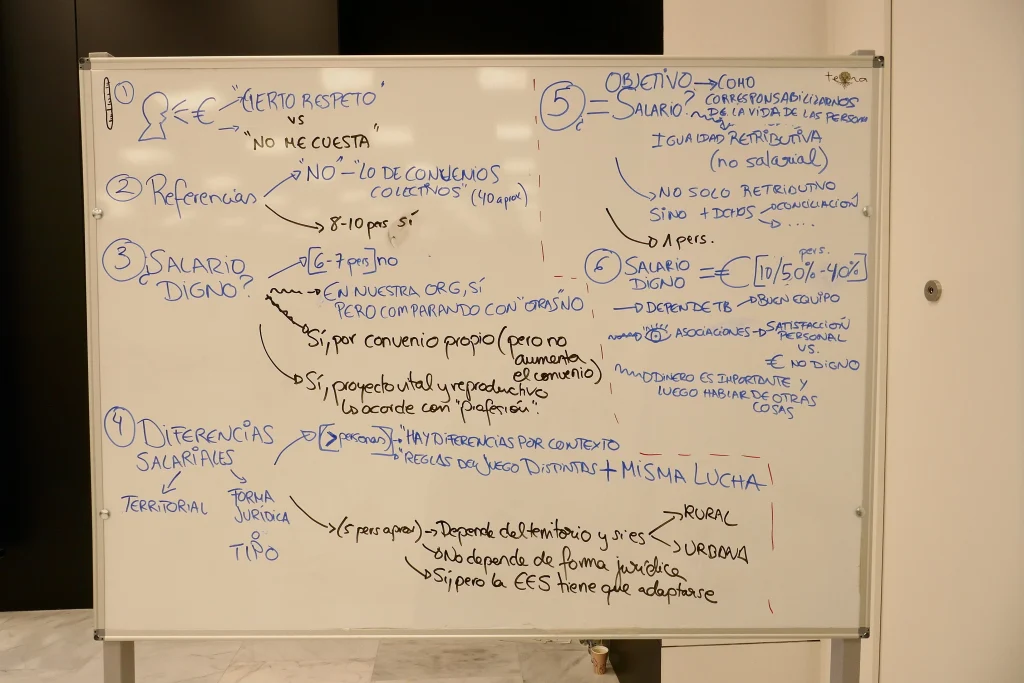 ① € → "CIERTO RESPETO"
VS
→ "NO ME CUESTA"
② Referencias
"NO" - "LO DE CONVENIOS
COLECTIVOS" (40 aprox)
8-10 pers sí
③ ¿SALARIO
DIGNO?
[6-7 pers] no
EN NUESTRA ORG, SÍ
PERO COMPARANDO CON "OTRAS" NO
Sí, por convenio propio (pero no
aumenta
el convenio)
Sí, proyecto vital y reproductivo
Lo acorde con "profesión".
④ DIFERENCIAS
SALARIALES
TERRITORIAL
FORMA
JURÍDICA
O
TIPO
[> personas] - "HAY DIFERENCIAS POR CONTEXTO
"REGLAS DEL JUEGO DISTINTAS + MISMA LUCHA
(5 pers aprox) → Depende del territorio y si es
RURAL
URBANA
No depende de forma jurídica
Sí, pero la EES tiene que adaptarse
tema
⑤ OBJETIVO → COMO
¿= SALARIO? CORRESPONSABILIZARNOS
DE LA VIDA DE LAS PERSONA
IGUALDAD RETRIBUTIVA
(no salarial)
NO SOLO RETRIBUTIVO
SINO + DCHOS → CONCILIACIÓN
→ ....
1 pers.
pers.
⑥ SALARIO
DIGNO = € [10/50% - 40%]
→ DEPENDE TB → BUEN EQUIPO
ASOCIACIONES → SATISFACCIÓN
PERSONAL
VS.
€ NO DIGNO
DINERO ES IMPORTANTE Y
LUEGO HABLAR DE OTRAS
COSAS